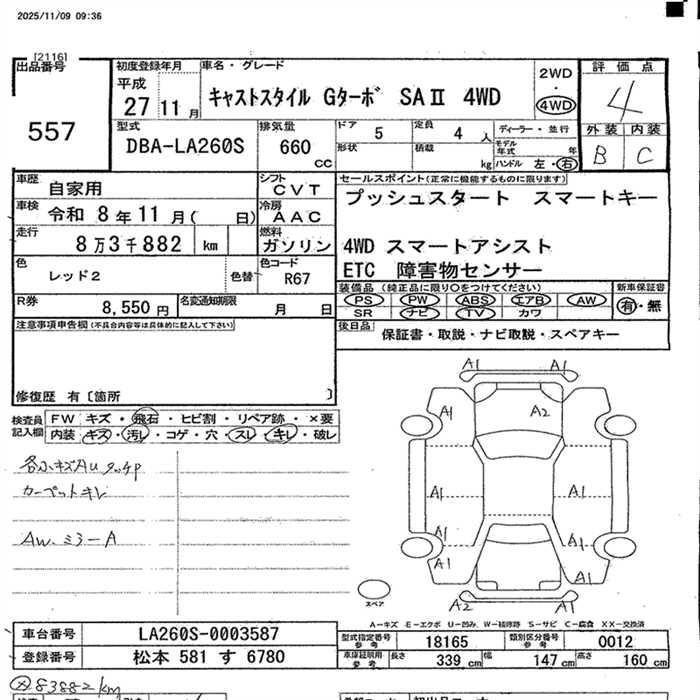 2025/11/09 09:36
[2116]
出品番号
557
初度登録年月
平成
27 11 月
車名・グレード
キャストスタイル Gターボ SAⅡ 4WD
2WD
・
4WD
評価点
4
外装 内装
B C
型式
DBA-LA260S
排気量
660
cc
ドア 5
定員 4 人
ディーラー・並行
形状
積載 kg
モデル年式 年
ハンドル 左・右
車歴 自家用
シフト CVT
車検 令和 8年11月( 日)
冷房 AAC
走行 8万3千882 km
燃料 ガソリン
色 レッド2
色替
色コード R67
R券 8,550円
名変通知期限 月 日
セールスポイント(正常に機能するものに限ります)
プッシュスタート スマートキー
4WD スマートアシスト
ETC 障害物センサー
装備品(純正品に限り○をつけてください)
新車保証書
PS PW ABS エアB AW
SR ナビ TV カワ
有・無
後日品 保証書・取説・ナビ取説・スペアキー
注意事項申告欄(不具合内容等は具体的に記入して下さい)
修復歴 有〔箇所 〕
検査員記入欄
FW キズ・飛石・ヒビ割・リペア跡・×要
内装 キズ・汚レ・コゲ・穴・スレ・キレ・破レ
各小キズAUタッチP
カーペットキレ
AW.ミラーA
A1 A1
A1 A2
A1 A1
A1 A1
A1 A1
A2 A1
スペア
A-キズ E-エクボ U-凹み W-補修跡 S-サビ C-腐食 XX-交換済
車台番号 LA260S-0003587
登録番号 松本 581 す 6780
型式指定番号 参考 18165
類別区分番号 参考 0012
車庫証明用 参考 長さ 339 cm 幅 147 cm 高さ 160 cm
83882km